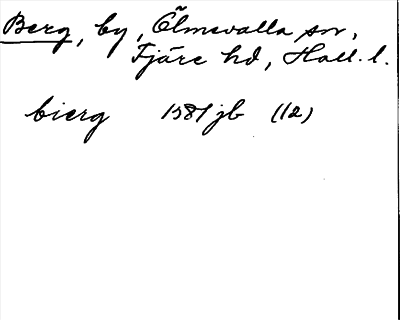 Berg, by, Ölmevalla sn,
Fjäre hd, Hall. l.
bierg 1581 jb (12)